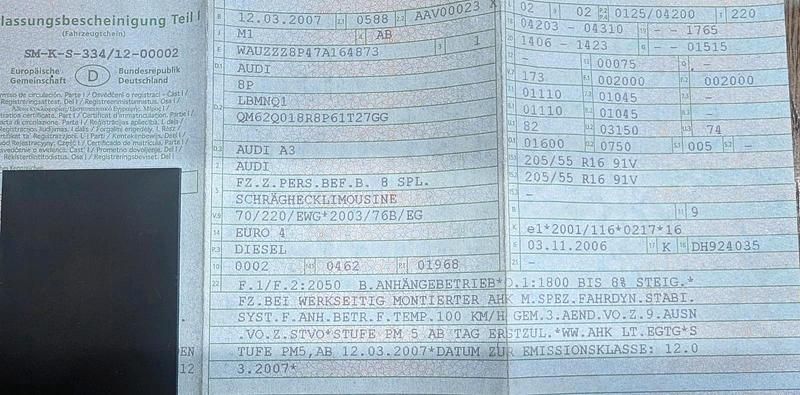 lassungsbescheinigung Teil I
(Fahrzeugschein)
SM-K-S-334/12-00002
Europäische Gemeinschaft
D
Bundesrepublik Deutschland
EN
12
B 12.03.2007 2.1 0588 2.2 AAV00023 X
J M1 4 AB
E WAUZZZ8P47A164873 3 1
D.1 AUDI
8P
D.2 LBMNQ1
QM62Q018R8P61T27GG
D.3 AUDI A3
2 AUDI
5 FZ.Z.PERS.BEF.B. 8 SPL.
SCHRÄGHECKLIMOUSINE
V.9 70/220/EWG*2003/76B/EG
14 EURO 4
P.3 DIESEL
10 0002 14.1 0462 P.1 01968
02 9 02 P.2 P.4 0125/04200 T 220
18 04203 - 04310 19 - - 1765
20 1406 - 1423 G - - 01515
- 13 00075 Q -
V.7 173 F.1 002000 F.2 002000
7.1 01110 7.2 01045 7.3 -
8.1 01110 8.2 01045 8.3 -
U.1 82 U.2 03150 U.3 74
O.1 01600 O.2 0750 S.1 005 S.2 -
15.1 205/55 R16 91V
15.2 205/55 R16 91V
15.3 -
R 11 9
K e1*2001/116*0217*16
6 03.11.2006 17 K 16 DH924035
21 -
22 F.1/F.2:2050 B.ANHÄNGEBETRIEB*O.1:1800 BIS 8% STEIG.*
FZ.BEI WERKSEITIG MONTIERTER AHK M.SPEZ.FAHRDYN.STABI.
SYST.F.ANH.BETR.F.TEMP.100 KM/H GEM.3.AEND.VO.Z.9.AUSN
.VO.Z.STVO*STUFE PM 5 AB TAG ERSTZUL.*WW.AHK LT.EGTG*S
TUFE PM5,AB 12.03.2007*DATUM ZUR EMISSIONSKLASSE: 12.0
3.2007*